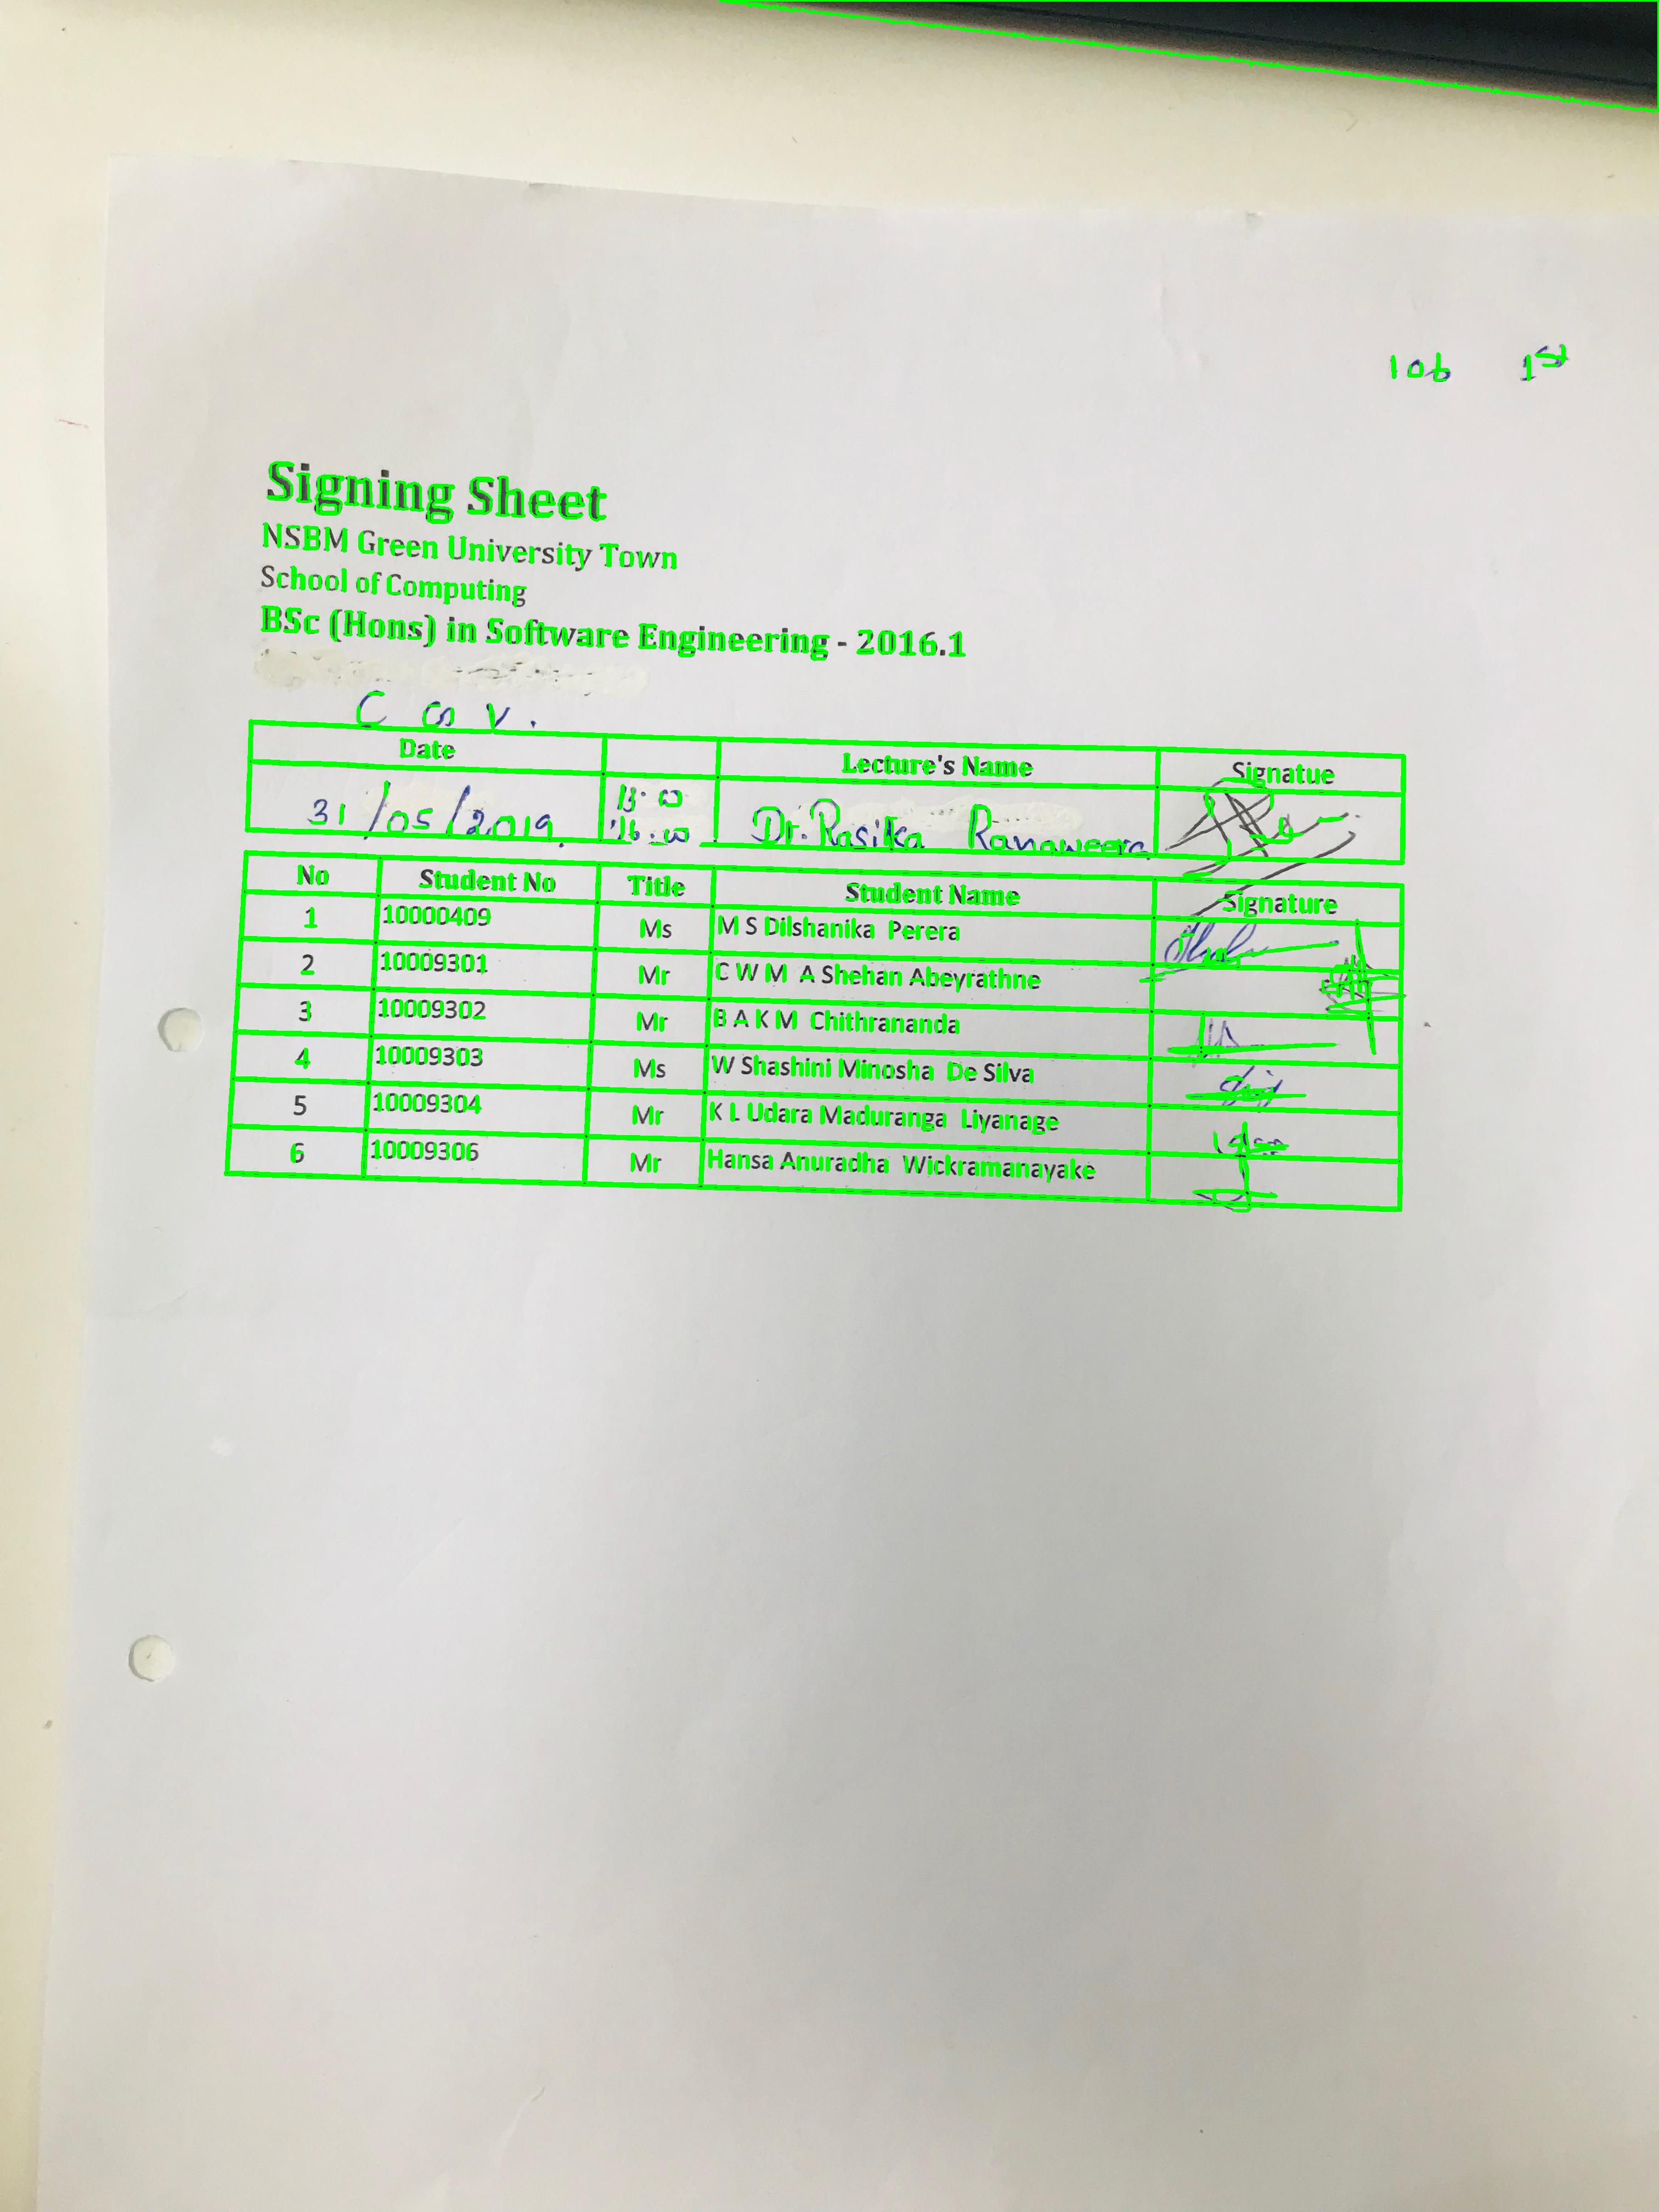 106 1st
Signing Sheet
NSBM Green University Town
School of Computing
BSc (Hons) in Software Engineering - 2016.1
Date Lecture's Name Signatue
31/05/2019 Dr. Rasika Ranaweera
No Student No Title Student Name Signature
1 10000409 Ms M S Dilshanika Perera
2 10009301 Mr C W M A Shehan Abeyrathne
3 10009302 Mr B A K M Chithrananda
4 10009303 Ms W Shashini Minosha De Silva
5 10009304 Mr K L Udara Maduranga Liyanage
6 10009306 Mr Hansa Anuradha Wickramanayake